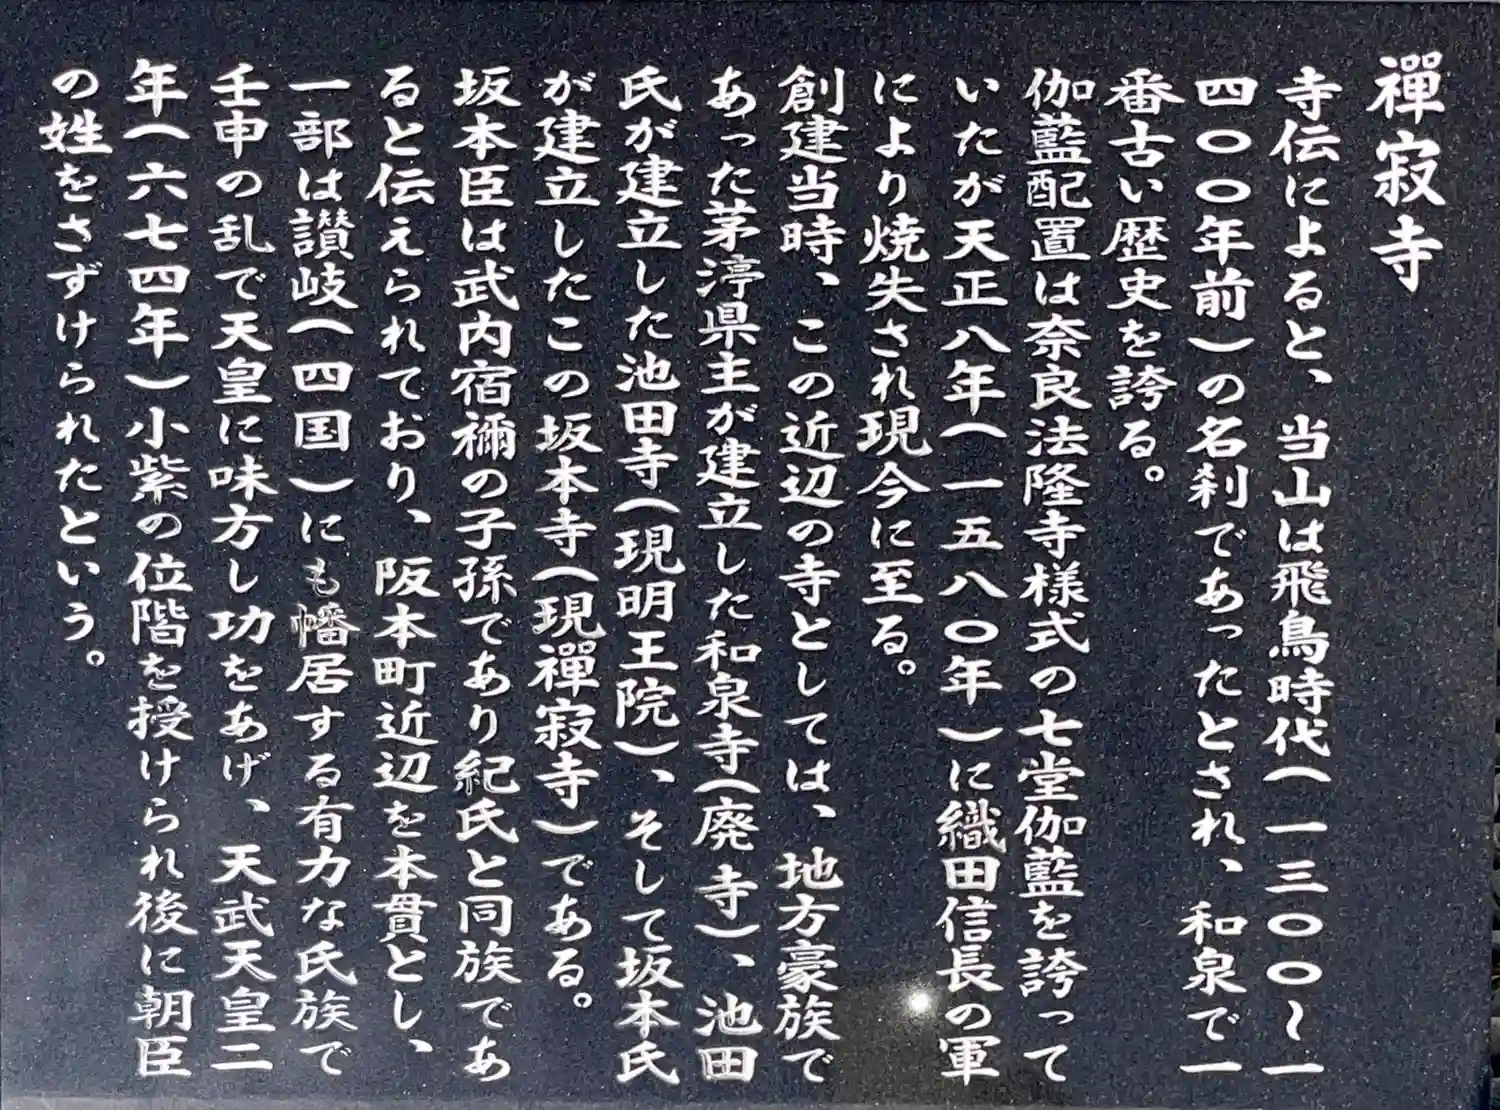 禪寂寺
寺伝によると、当山は飛鳥時代(一三〇〇~一
四〇〇年前)の名刹であったとされ、和泉で一
番古い歴史を誇る。
伽藍配置は奈良法隆寺様式の七堂伽藍を誇って
いたが天正八年(一五八〇年)に織田信長の軍
により焼失され現今に至る。
創建当時、この近辺の寺としては、地方豪族で
あった茅渟県主が建立した和泉寺(廃寺)、池田
氏が建立した池田寺(現明王院)、そして坂本氏
が建立したこの坂本寺(現禪寂寺)である。
坂本臣は武内宿禰の子孫であり紀氏と同族であ
ると伝えられており、阪本町近辺を本貫とし、
一部は讃岐(四国)にも幡居する有力な氏族で
壬申の乱で天皇に味方し功をあげ、天武天皇二
年(六七四年)小紫の位階を授けられ後に朝臣
の姓をさずけられたという。